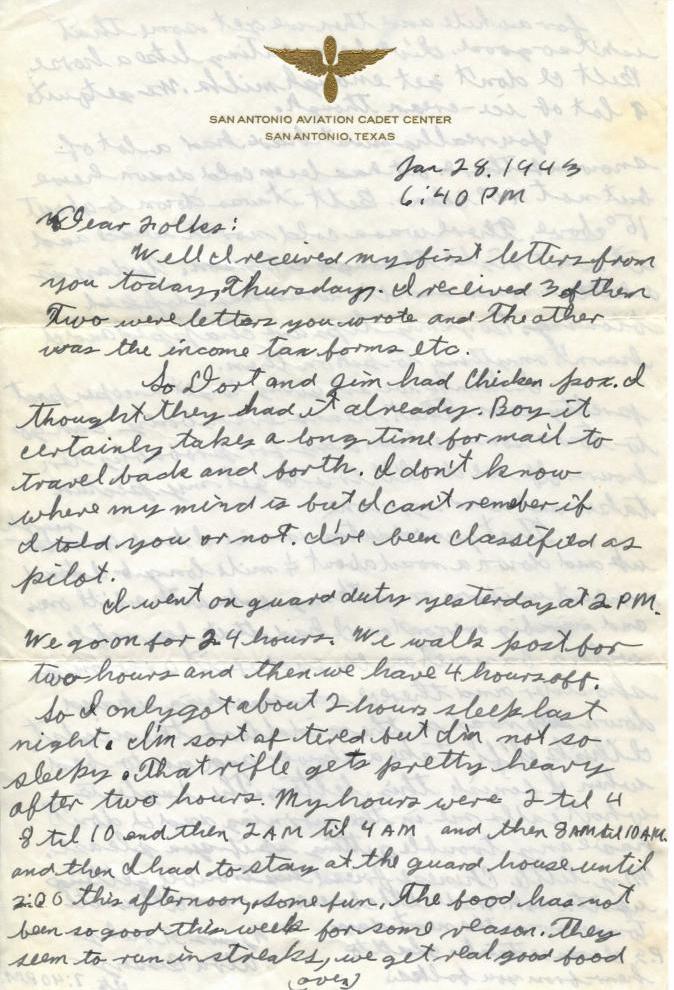 SAN ANTONIO AVIATION CADET CENTER
SAN ANTONIO, TEXAS
Jan 28. 1943
6:40 PM
Dear Folks:
Well I received my first letters from
you today, Thursday. I received 3 of them
Two were letters you wrote and the other
was the income tax forms etc.
So Dort and Jim had Chicken pox. I
thought they had it already. Boy it
certainly takes a long time for mail to
travel back and forth. I don't know
where my mind is but I can't remeber if
I told you or not. I've been classified as
pilot.
I went on guard duty yesterday at 2 PM.
We go on for 24 hours. We walk post for
two hours and then we have 4 hours off.
So I only got about 2 hours sleep last
night. I'm sort of tired but I'm not so
sleepy. That rifle gets pretty heavy
after two hours. My hours were 2 til 4
8 til 10 and then 2 AM til 4 AM and then 8 AM til 10 AM.
and then I had to stay at the guard house until
2:00 this afternoon, some fun. The food has not
been so good this week for some reason. They
seem to run in streaks, we get real good food
(over)